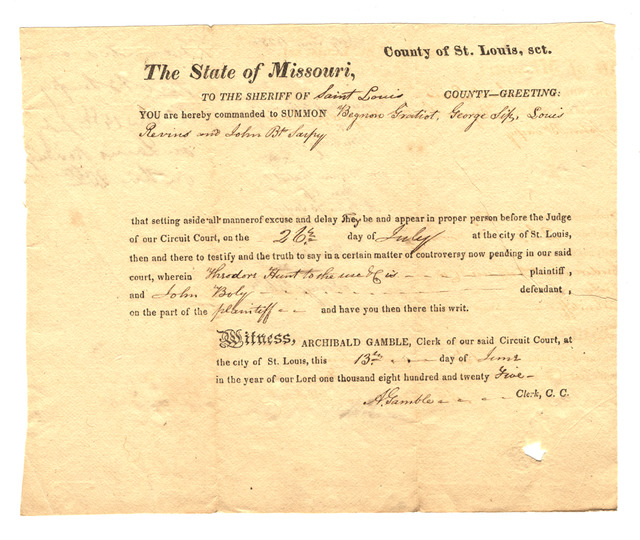 County of St. Louis, sct.
The State of Missouri,
TO THE SHERIFF OF Saint Louis COUNTY—GREETING:
YOU are hereby commanded to SUMMON Begnon Gratiot, George Sip, Louis
Revins and John Bt Sarpy
that setting aside all manner of excuse and delay They be and appear in proper person before the Judge
of our Circuit Court, on the 26th day of July at the city of St. Louis,
then and there to testify and the truth to say in a certain matter of controversy now pending in our said
court, wherein Theodore Hunt to the use &c is plaintiff,
and John Boly defendant,
on the part of the plaintiff and have you then there this writ.
Witness, ARCHIBALD GAMBLE, Clerk of our said Circuit Court, at
the city of St. Louis, this 13th day of June
in the year of our Lord one thousand eight hundred and twenty Five
A. Gamble Clerk, C. C.